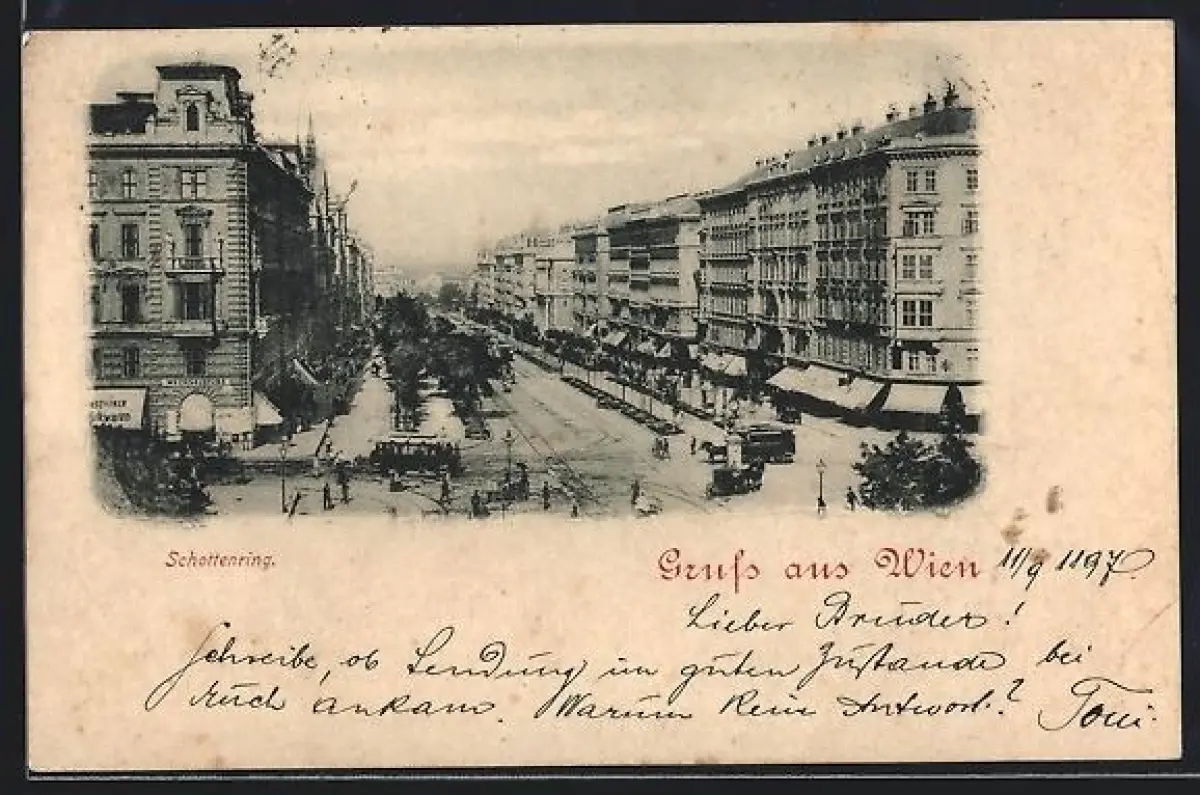 Schottenring.
Gruß aus Wien 11/9 1197
Lieber Bruder!
Schreibe, ob Sendung im guten Zustande bei
Euch ankam. Warum kein Antwort? Toni.